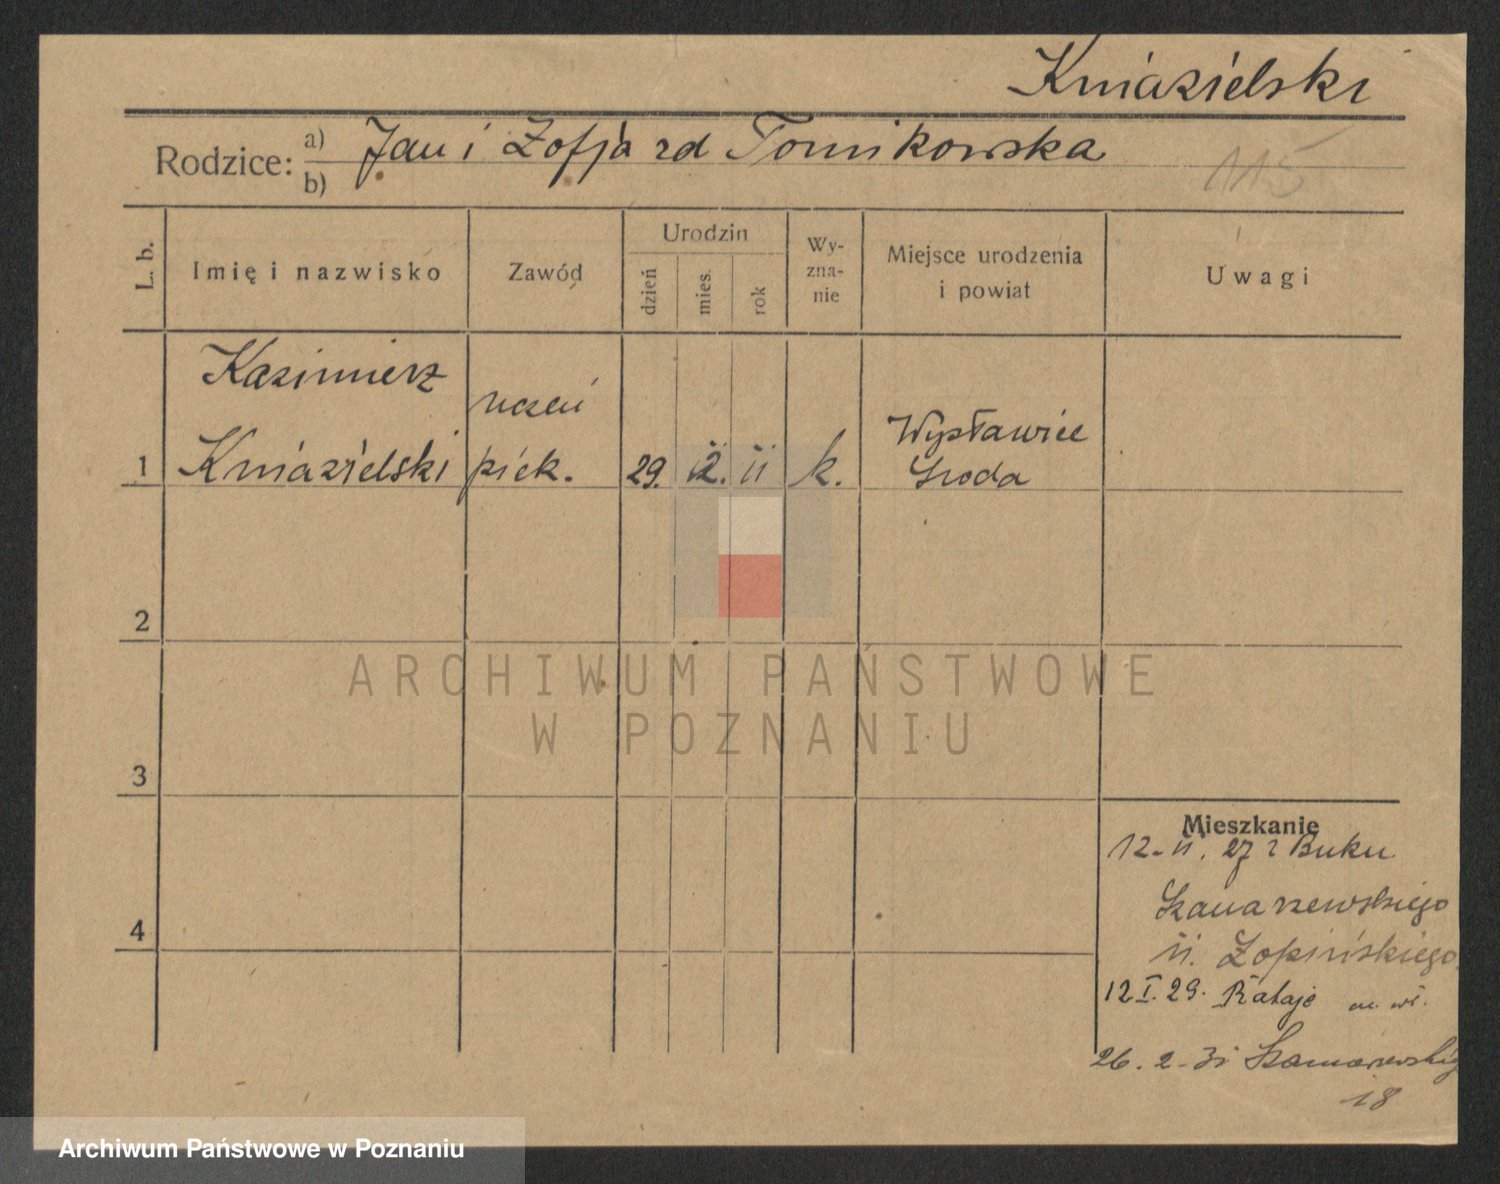 Kniazielski
Rodzice: a) Jan i Zofja zd Tomikowska
b)
115
L. b. Imię i nazwisko Zawód Urodzin dzień mies. rok Wy-zna-nie Miejsce urodzenia i powiat Uwagi
Kazimierz uczeń Wysławice
1 Kniazielski piek. 29. 12. 11 k. Środa
2
ARCHIWUM PAŃSTWOWE
W POZNANIU
3
Mieszkanie
12. 11. 27 z Buku
4
11. Łopińskiego
12 I. 29. Rataje
26. 2. 31
18
Archiwum Państwowe w Poznaniu